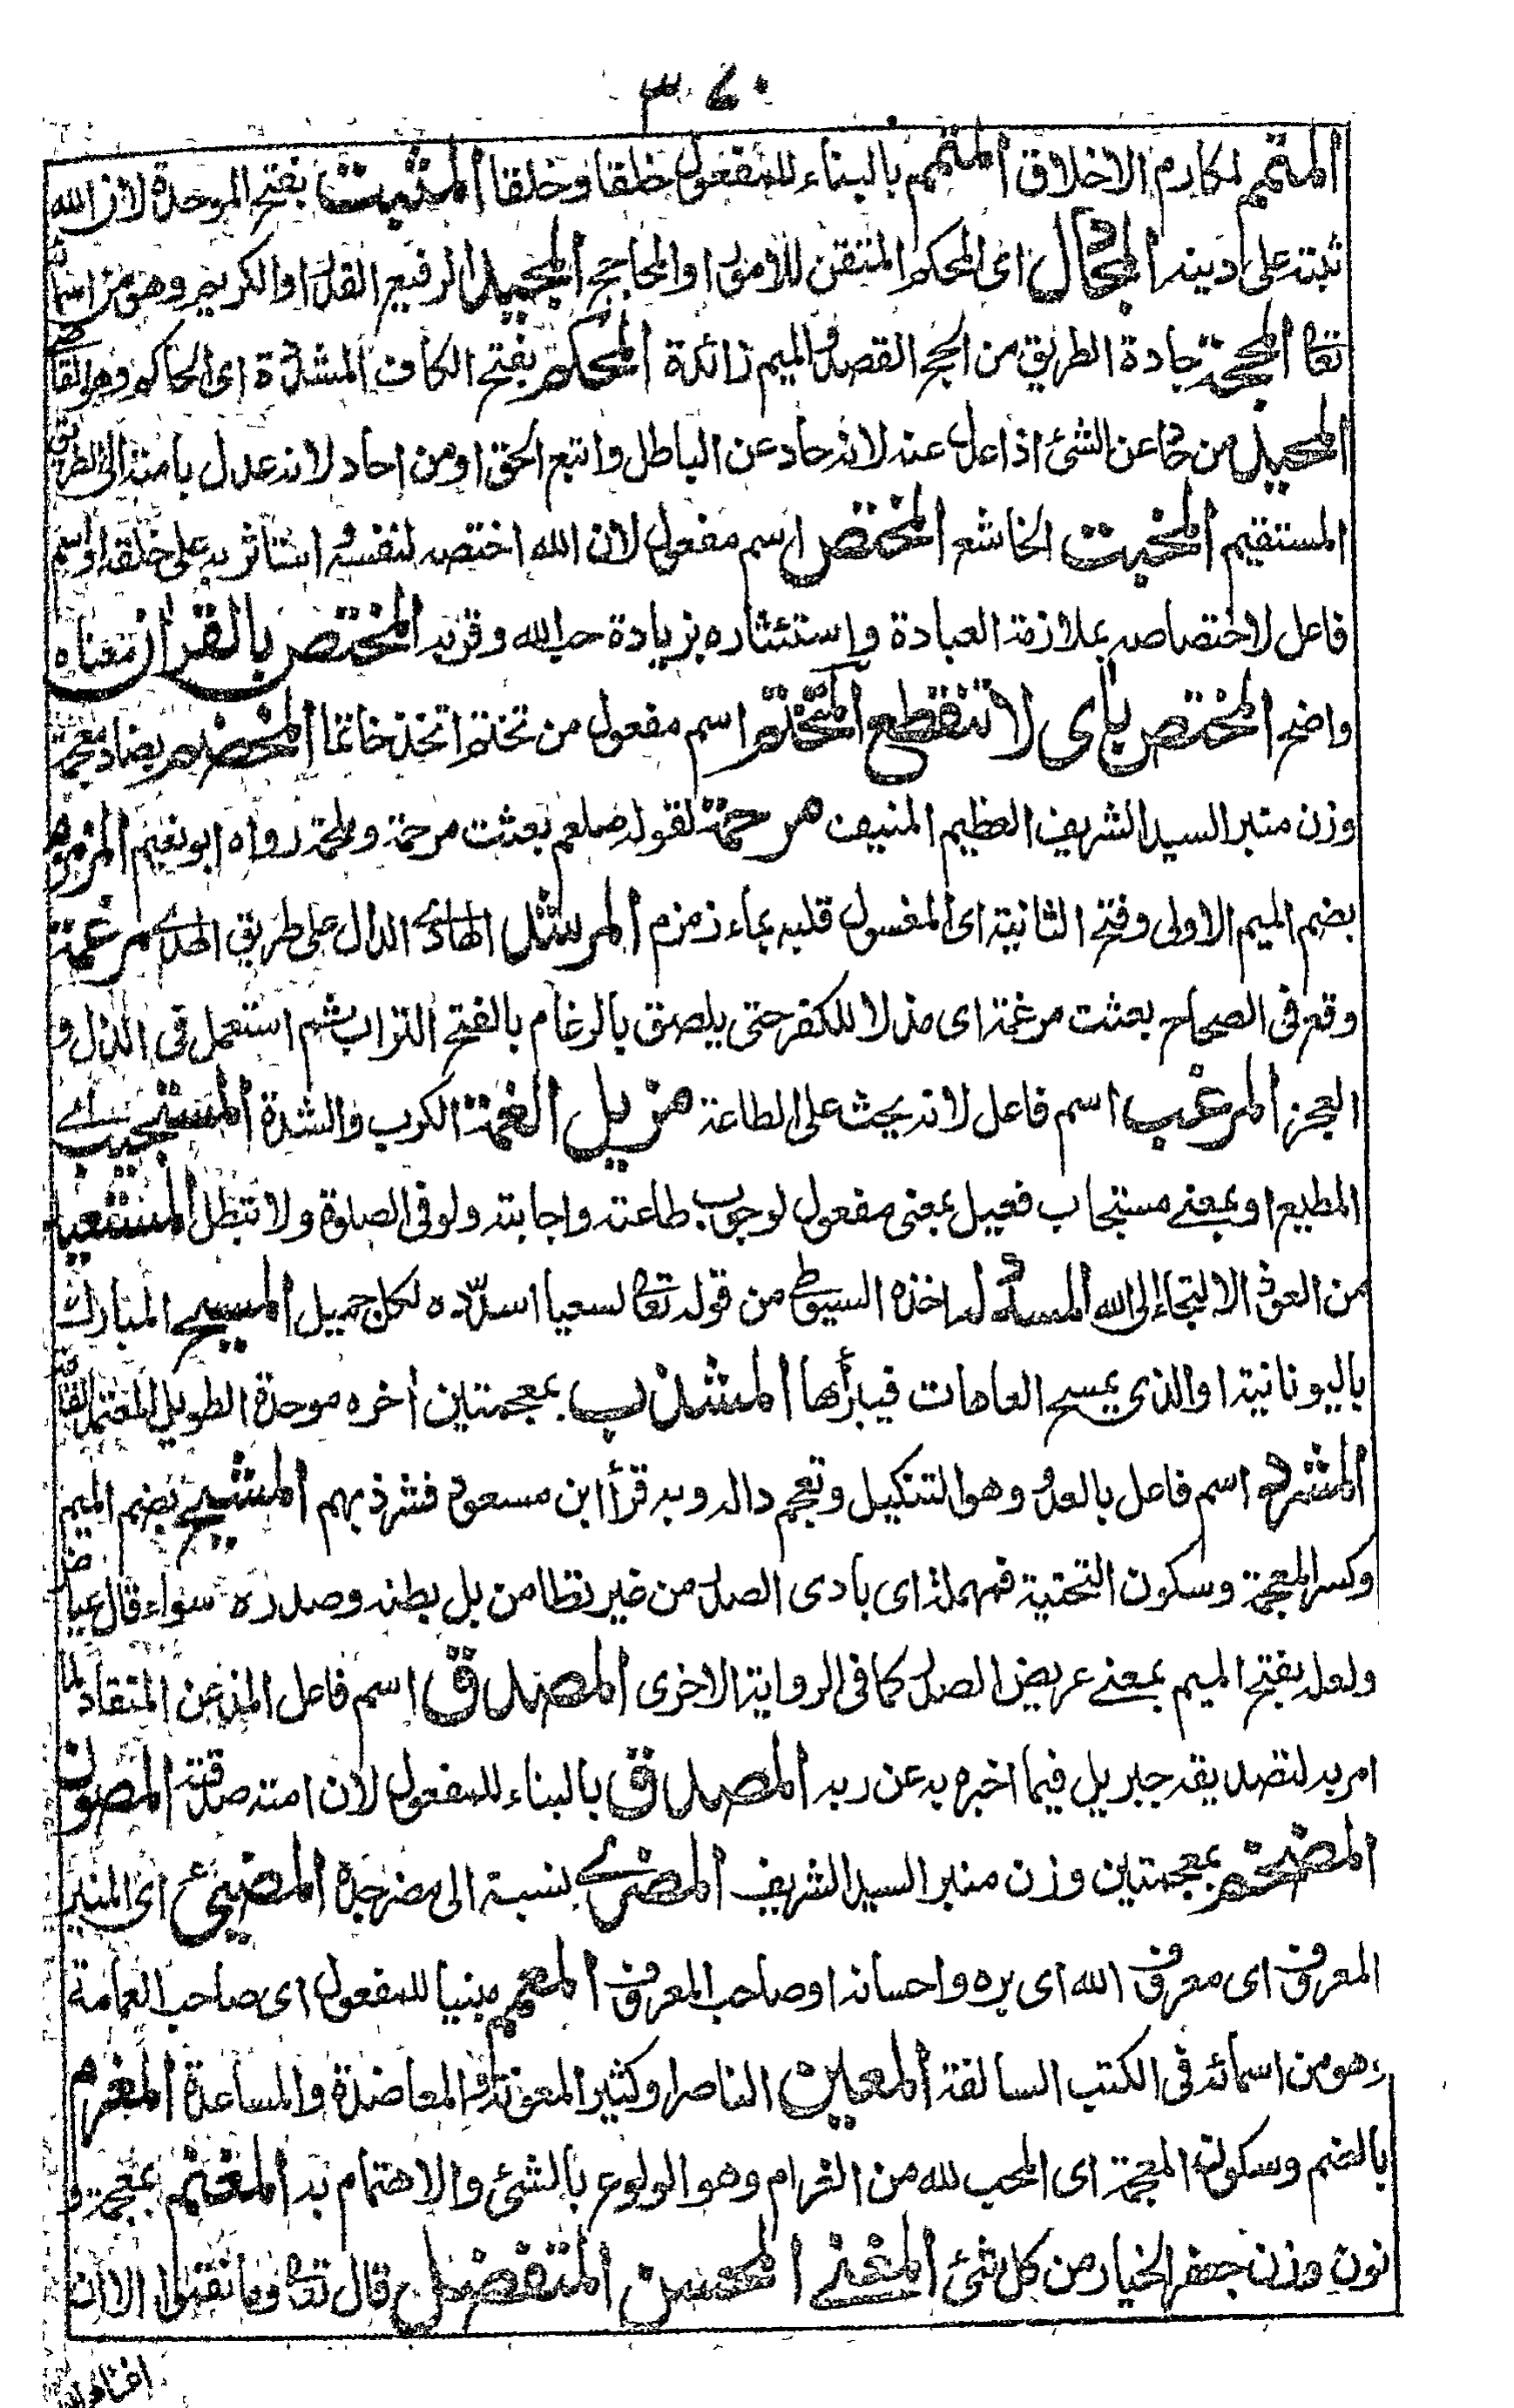 ٣٤٠
المتمم لمكارم الاخلاق المتمم بالبناء للمفعول خلقا وخلقا المثبت بفتح الموحدة لان الله
ثبته على دينه المجادل اى المحكم المتقن للامور او المحاجج المجيد الرفيع القدر او الكريم وهو من اسمائه
تعا المحجة جادة الطريق من الحج القصد والميم زائدة المحكم بفتح الكاف المشددة اى الحاكم وهو القاضى
المحيد من حاد عن الشئ اذا عدل عنه لانه حاد عن الباطل واتبع الحق او من احاد لانه عدل بامته الى الطريق
المستقيم المخبت الخاشع المختص اسم مفعول لان الله اختصه لنفسه واستاثر به على خلقه او اسم
فاعل لاختصاصه بملازمة العبادة واستئثاره بزيادة حب الله وقربه المختص بالقران معناه
واضح المختص بآى لا تنقطع المتختم اسم مفعول من تختم اتخذ خاتما المخضم بضاد معجمة
وزن منبر السيد الشريف العظيم المنيف مرحمة لقوله صلعم بعثت مرحمة وملحمة رواه ابو نعيم المزمزم
بضم الميم الاولى وفتح الثانية اى المغسول قلبه بماء زمزم المرشد الهادى الدال على طريق الهدى مرغمة
وقع فى الصحاح بعثت مرغمة اى مذلا للكفر حتى يلصق بالرغام بالفتح التراب ثم استعمل فى الذل و
العجز المرغب اسم فاعل لانه يحث على الطاعة مزيل الغمة الكرب والشدة المستجيب اے
المطيع او بمعنے مستجاب فعيل بمعنى مفعول لوجوب طاعته واجابته ولو فى الصلوة ولا تبطل المستعيذ
من العوذ الالتجاء الى الله المسدد له اخذه السيوطى من قوله تعا لسعيا اسدّده لكل جميل المسيح المبارك
باليونانية او الذى يمسح العاهات فيبرأها المشذب بمعجمتين اخره موحدة الطويل المعتدل القامة
المشرد اسم فاعل بالعدو وهو التنكيل وتعجم داله وبه قرأ ابن مسعود فشرذ بهم المشيح بضم الميم
وكسر المعجمة وسكون التحتية فمهملة اى بادى الصدر من غير تطامن بل بطنه وصدره سواء قال عياض
ولعله بفتح الميم بمعنے عريض الصدر كما فى الرواية الاخرى المصدق اسم فاعل المذعن المنقاد لما
امر به لتصديقه جبريل فيما اخبره به عن ربه المصدق بالبناء للمفعول لان امته صدقته المصون
المضخم بمعجمتين وزن منبر السيد الشريف المضرى نسبة الى مضر جده المضيئ اى المنير
المعروف اى معروف الله اى بره واحسانه او صاحب المعروف المعمم مبنيا للمفعول اى صاحب العمامة
وهو من اسمائه فى الكتب السالفة المعين الناصر او كثير المعونة والمعاضدة والمساعدة المغرم
بالضم وسكون المعجمة اى المحب لله من الغرام وهو الولوع بالشئ والاهتمام به المغنم بمعجمة و
نون وزن جعفر الخيار من كل شئ المغنے المحسن المتفضل قال تعا وما نقموا الا ان